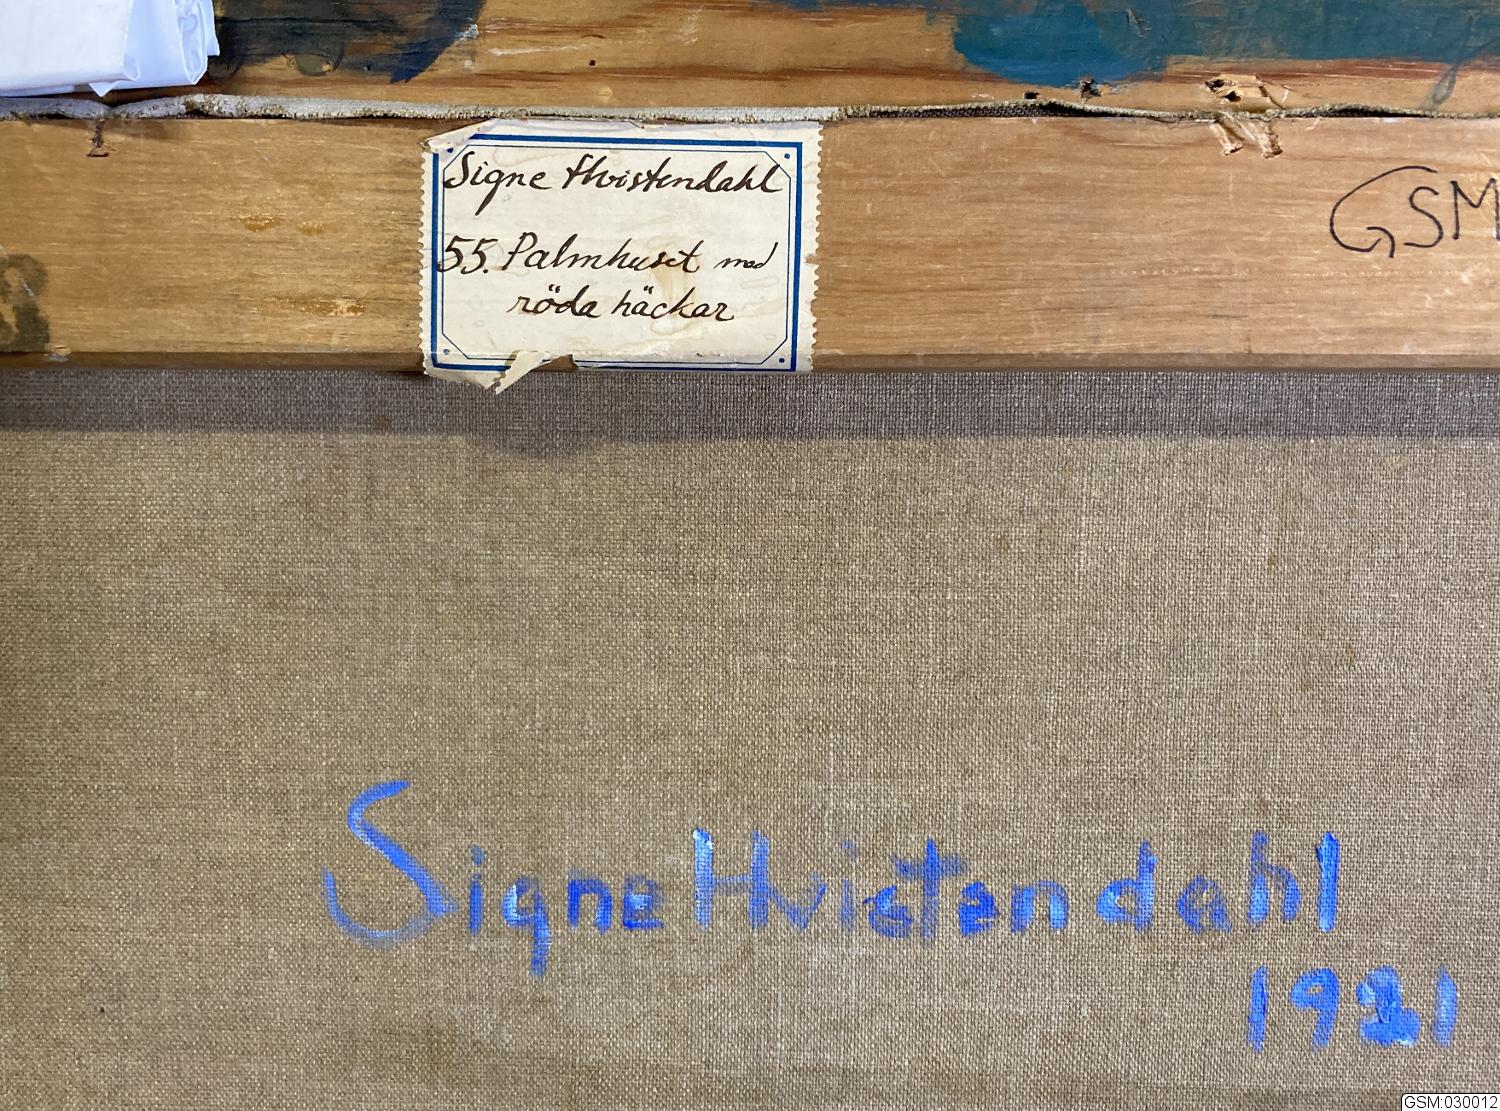 Signe Hvistendahl
55. Palmhuset med
röda häckar
GSM
Signe Hvistendahl
1921
GSM:030012